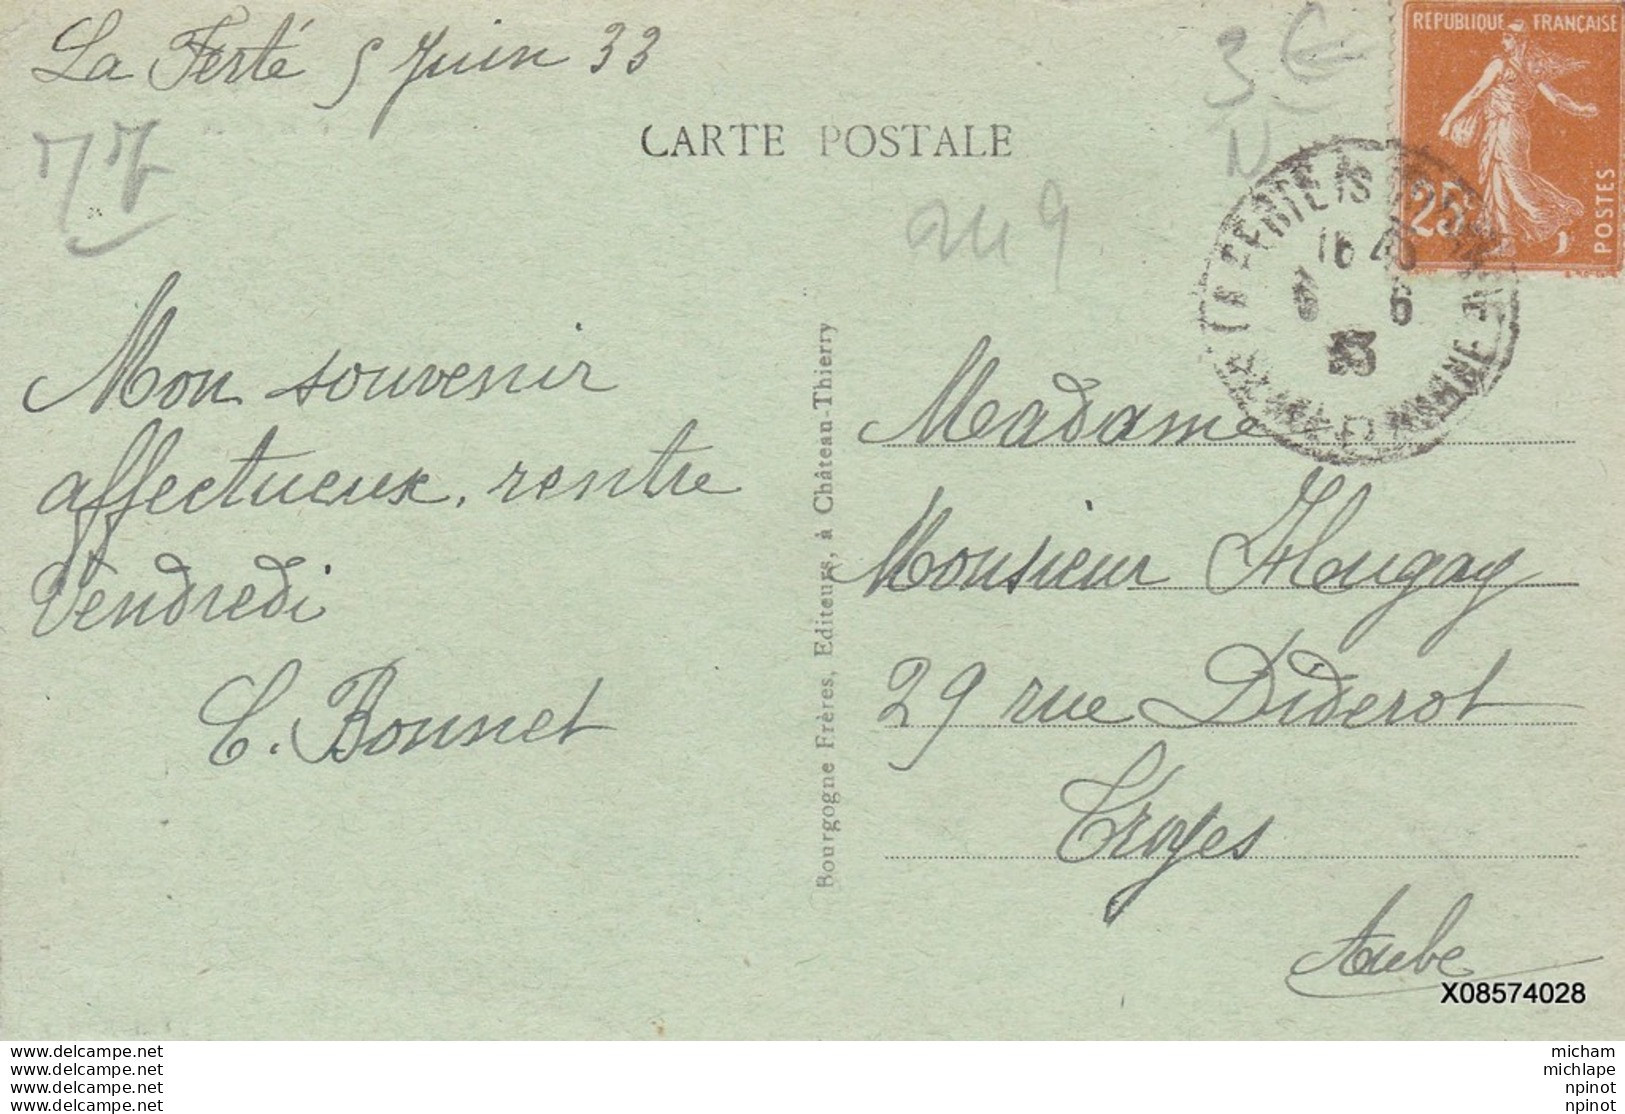 La Ferté 5 Juin 33
77
3 €
N
CARTE POSTALE
RÉPUBLIQUE FRANÇAISE
25c
POSTES
16 45
6
33
SEINE ET MARNE
Mon souvenir
affectueux, rentre
Vendredi
C. Bonnet
Bourgogne Frères, Editeurs, à Château-Thierry
Madame
Monsieur Hugay
29 rue Diderot
Troyes
Aube
X08574028
www.delcampe.net
www.delcampe.net
www.delcampe.net
www.delcampe.net
micham
michlape
npinot
npinot